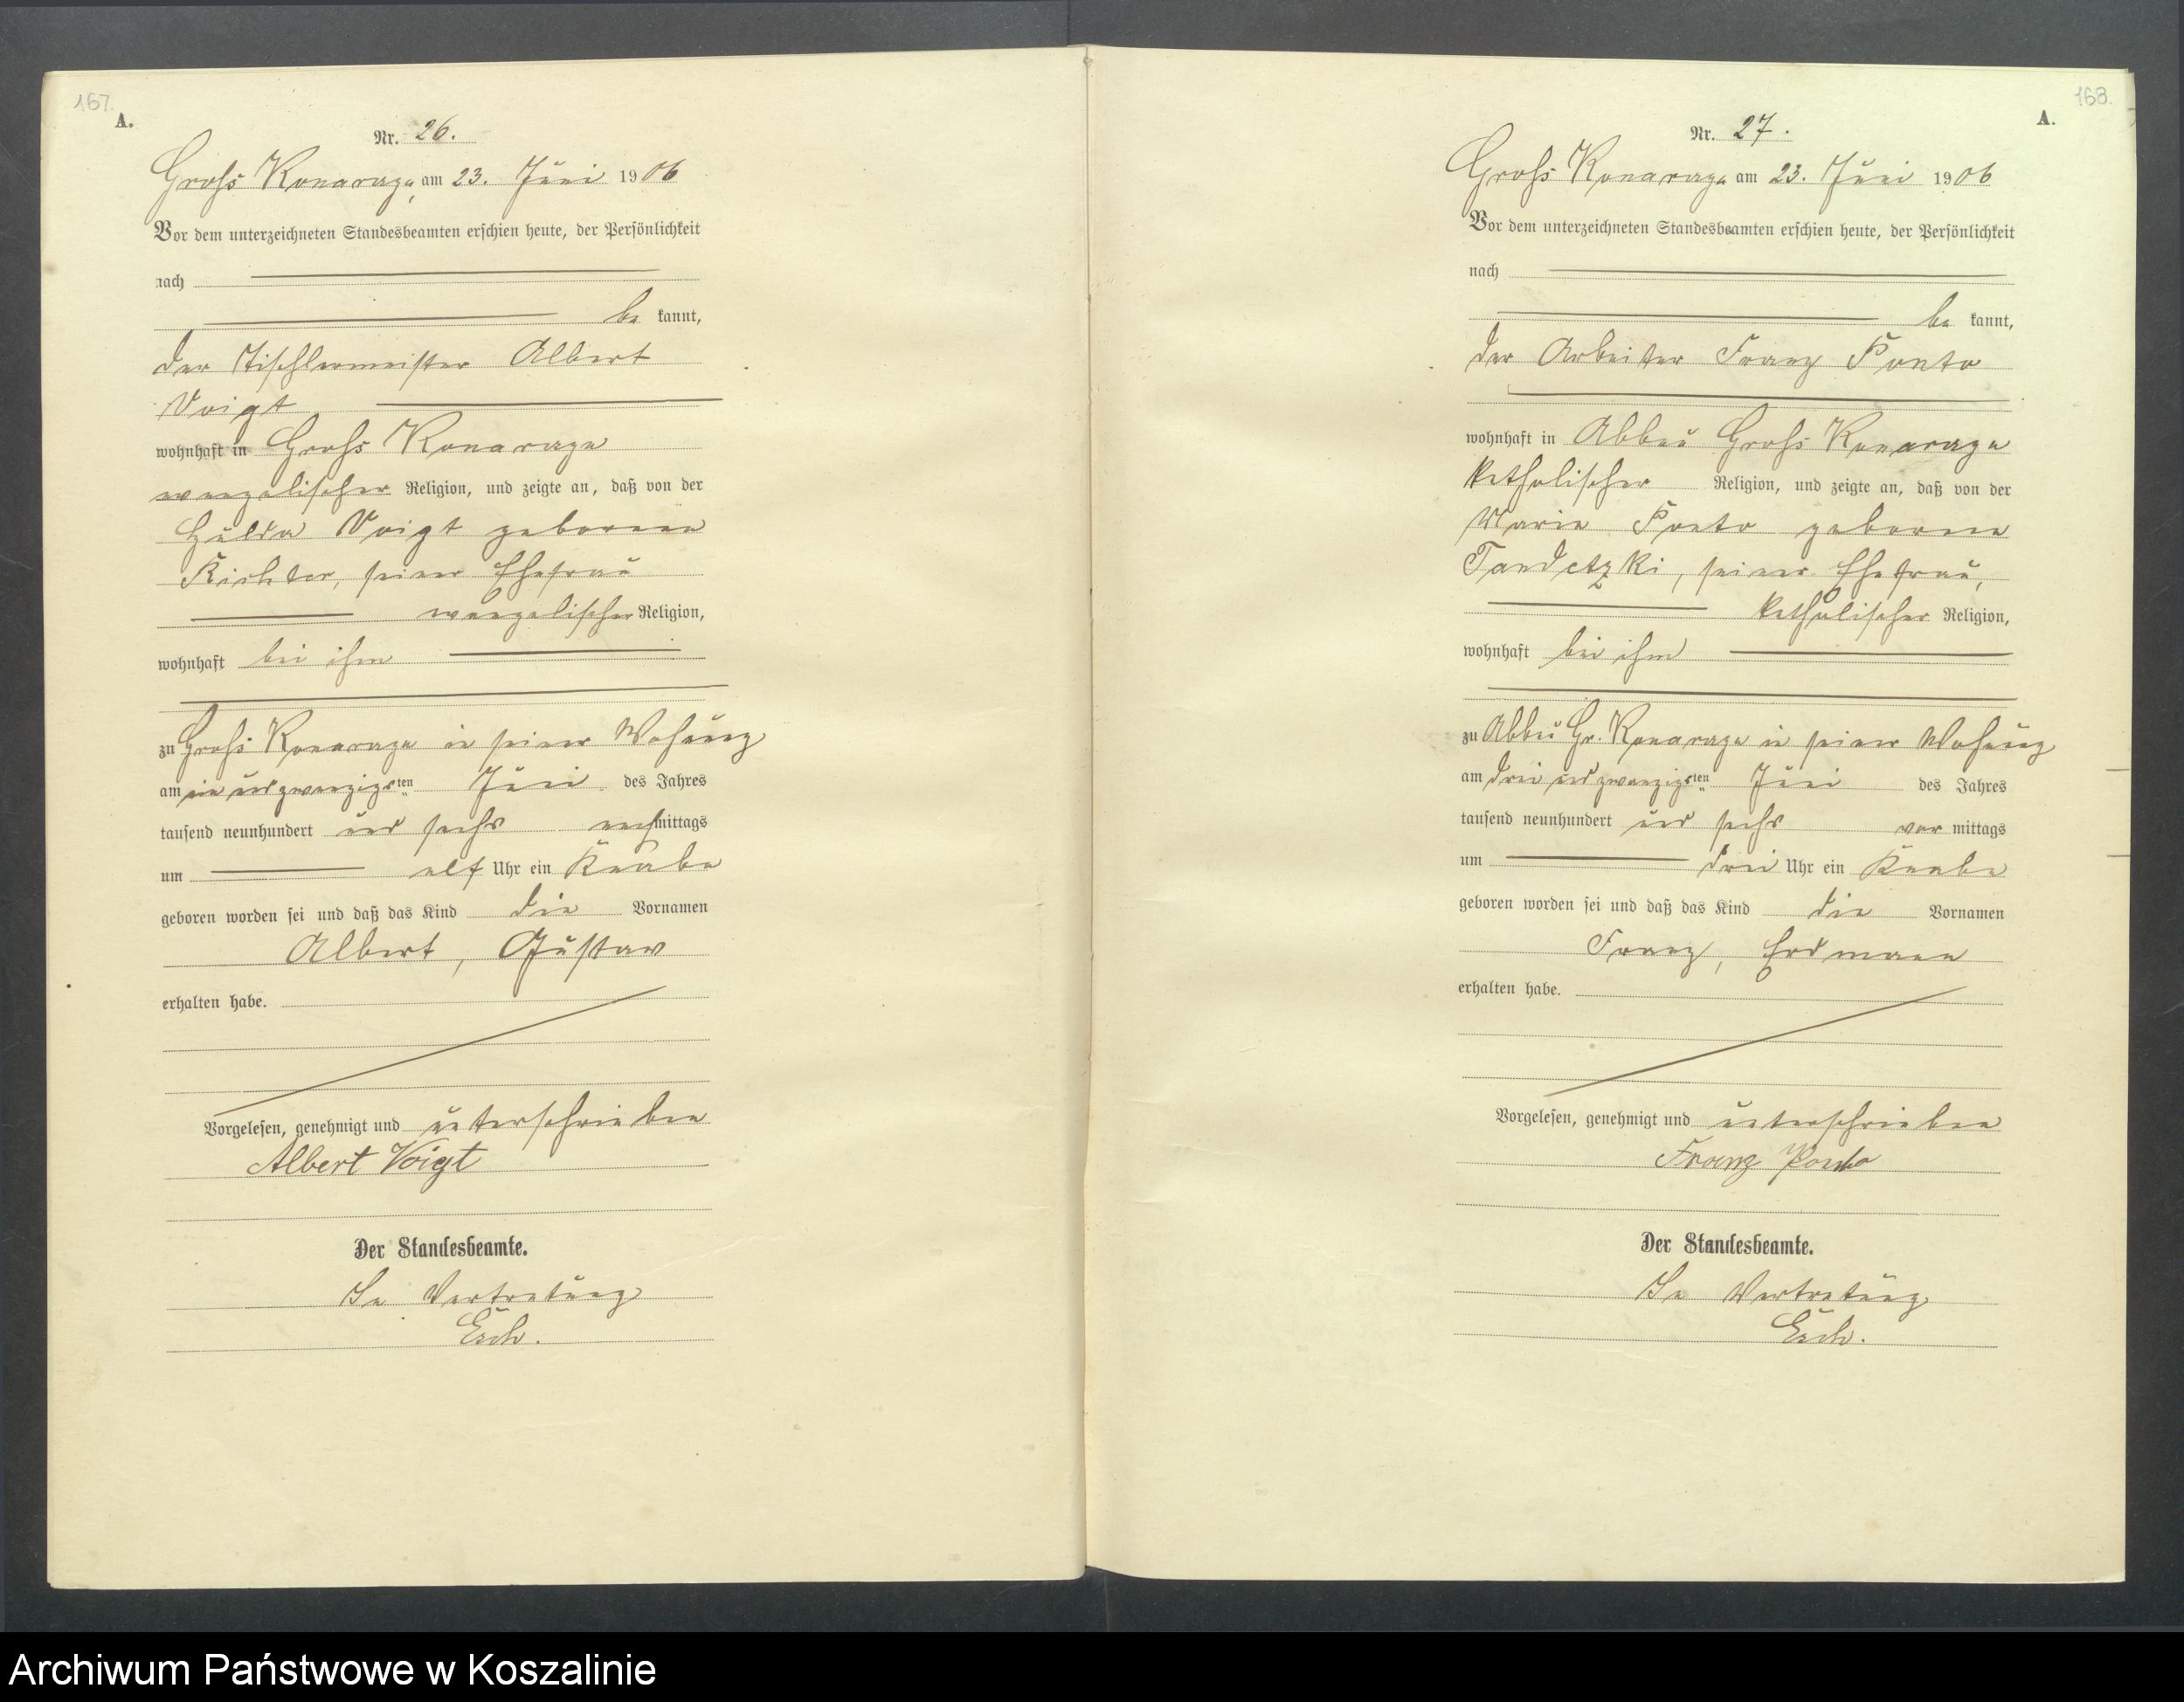 167.
A.
Nr. 26.
Gross Konarzyn am 23. Juni 1906
Vor dem unterzeichneten Standesbeamten erschien heute, der Persönlichkeit
nach
be kannt,
der Tischlermeister Albert
Voigt
wohnhaft in Gross
evangelischer Religion, und zeigte an, daß von der
Hulda Voigt geborenen
Richter, seiner Ehefrau
evangelischer Religion,
wohnhaft bei ihm
zu Gross in seiner Wohnung
am ein und zwanzigsten Juni des Jahres
tausend neunhundert und sechs nachmittags
um elf Uhr ein Knabe
geboren worden sei und daß das Kind die Vornamen
Albert, Gustav
erhalten habe.
Vorgelesen, genehmigt und unterschrieben
Albert Voigt
Der Standesbeamte.
In Vertretung
168.
A.
Nr. 27.
Gross am 23. Juni 1906
Vor dem unterzeichneten Standesbeamten erschien heute, der Persönlichkeit
nach
be kannt,
der Arbeiter Franz Ponto
wohnhaft in Abbau Gross
katholischer Religion, und zeigte an, daß von der
Maria Ponto geborene
Tandetzki, seiner Ehefrau,
katholischer Religion,
wohnhaft bei ihm
zu Abbau Gr. in seiner Wohnung
am drei und zwanzigsten Juni des Jahres
tausend neunhundert und sechs vor mittags
um drei Uhr ein Knabe
geboren worden sei und daß das Kind die Vornamen
Franz, Erdmann
erhalten habe.
Vorgelesen, genehmigt und unterschrieben
Franz Ponto
Der Standesbeamte.
In Vertretung
Archiwum Państwowe w Koszalinie